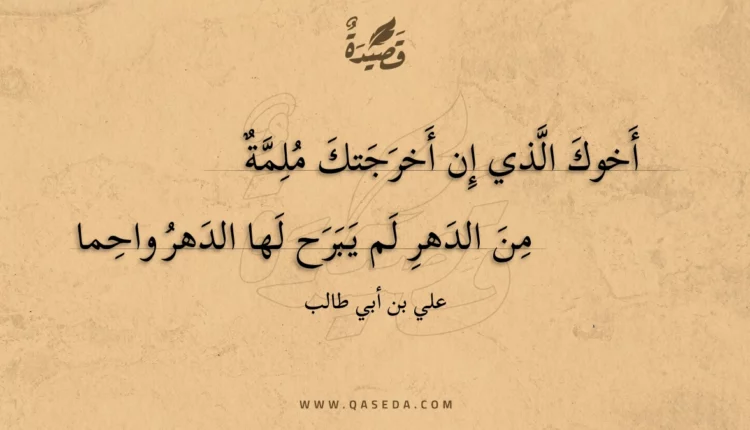 قَصِيدَةٌ
أَخوكَ الَّذي إِن أَخرَجَتكَ مُلِمَّةٌ
مِنَ الدَهرِ لَم يَبَرَح لَها الدَهرُ واجِما
علي بن أبي طالب
WWW.QASEDA.COM